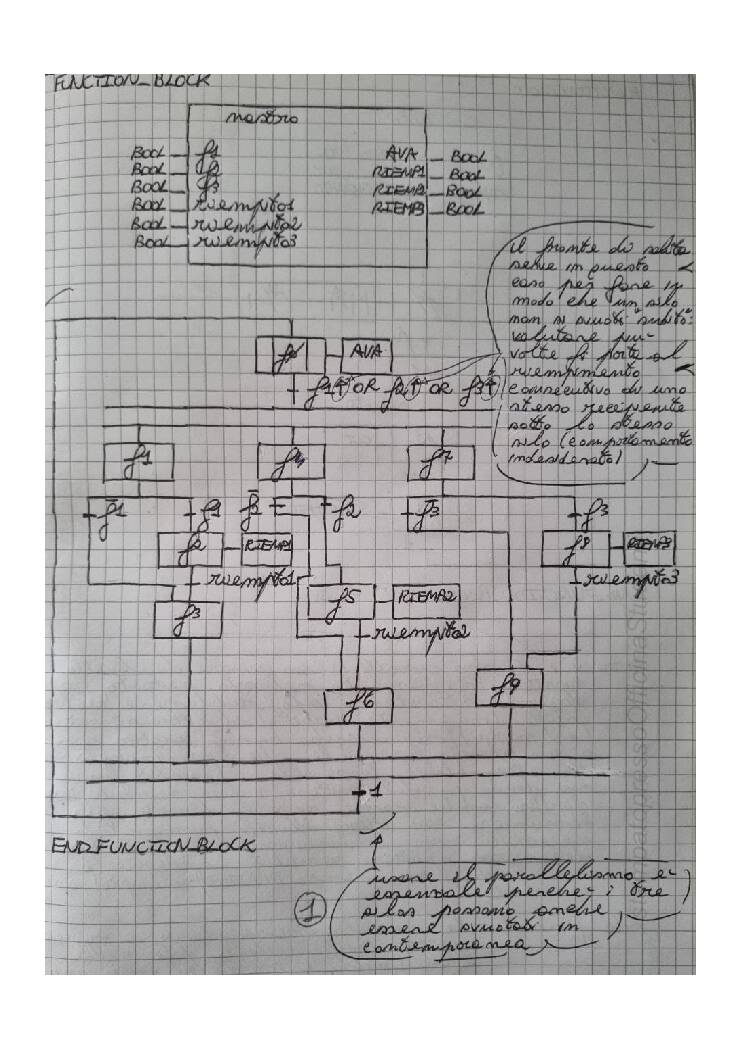 FUNCTION_BLOCK
nastro
BOOL f1
BOOL f2
BOOL f3
BOOL riempito1
BOOL riempito2
BOOL riempito3
AVA BOOL
RIEMP1 BOOL
RIEMP2 BOOL
RIEMP3 BOOL
il fronte di salita
serve in questo
caso per fare in
modo che un silo
non si svuoti subito:
valutare piu-
volte fi porta al
riempimento
consecutivo di uno
stesso recipiente
sotto lo stesso
silo (comportamento
indesiderato)
f0 AVA
f1↑ OR f2↑ OR f3↑
f1 f4 f7
f̅1 f1 f̅2 f2 f̅3 f3
f2 RIEMP1 f8 RIEMP3
riempito1 riempito3
f5 RIEMP2
f3
riempito2
f9
f6
1
END_FUNCTION_BLOCK
1
usare il parallelismo e-
essenziale perche- i tre
silos possono anche
essere svuotati in
contemporanea